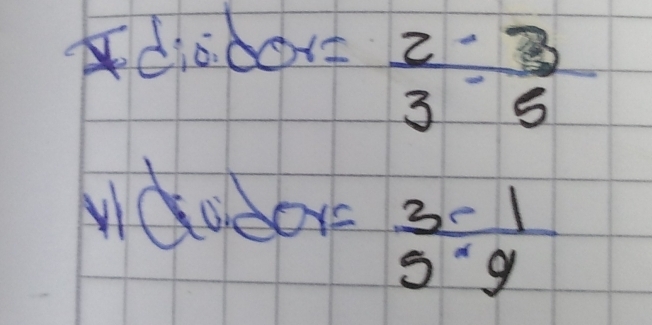 V. dividor= 2/3 ÷ 3/5
VI dividor= 3/5 ÷ 1/9